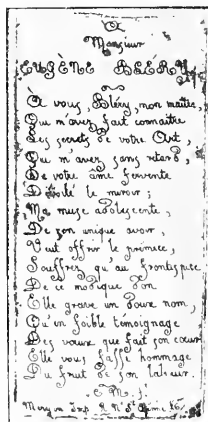 A
Monsieur
EUGÈNE BLÉRY
A vous, Bléry, mon maître,
Qui m'avez fait connaître
Les secrets de votre Art,
Qui m'avez sans retard,
De votre âme fervente
Dévoilé le miroir ;
Ma muse adolescente,
De son unique avoir,
Veut offrir le prémice,
Souffrez qu'au frontispice
De ce modique don
Elle grave un doux nom,
Qu'en foible témoignage
Des vœux que fait son cœur
Elle vous fasse hommage
Du fruit de son labeur.
C. M.
Meryon Imp. R. Nve St Etienne